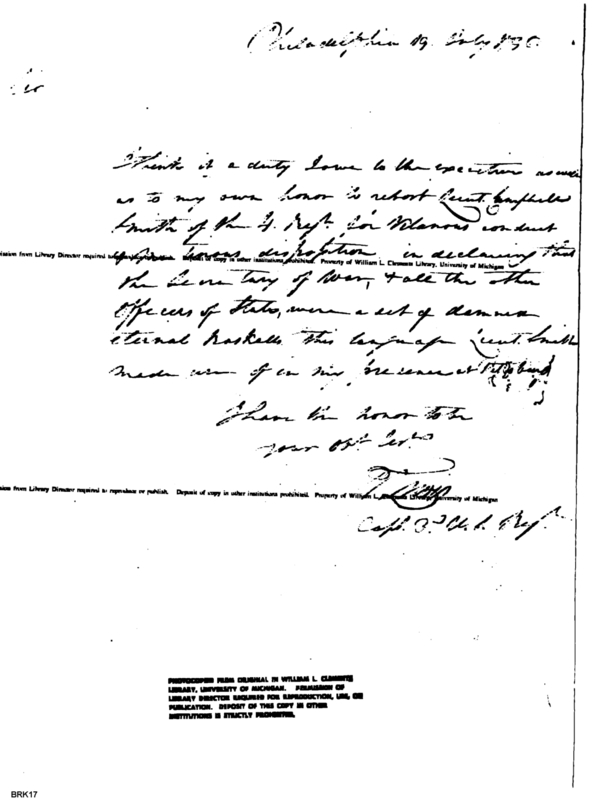 Philadelphia 19 July
Sir
I think it a duty I owe to the executive as well
as to my own honor to report Lieut. Campbell
Smith of the 4 Regt. for Vilanous conduct
disposition in declaring that
mission from Library Director required to reproduce or publish. Deposit of copy in other institutions prohibited. Property of William L. Clements Library, University of Michigan
the Secretary of War, & all the other
Officers of State, were a set of damned
eternal Raskells this language Lieut. Smith
made use of in my presence at Pittsburg
I have the honor to be
your Obt. Servt.
mission from Library Director required to reproduce or publish. Deposit of copy in other institutions prohibited. Property of William L. Clements Library, University of Michigan
Capt. 3d U.S. Regt.
PHOTOCOPIED FROM ORIGINAL IN WILLIAM L. CLEMENTS
LIBRARY, UNIVERSITY OF MICHIGAN. PERMISSION OF
LIBRARY DIRECTOR REQUIRED FOR REPRODUCTION, USE, OR
PUBLICATION. DEPOSIT OF THIS COPY IN OTHER
INSTITUTIONS IS STRICTLY PROHIBITED.
BRK17